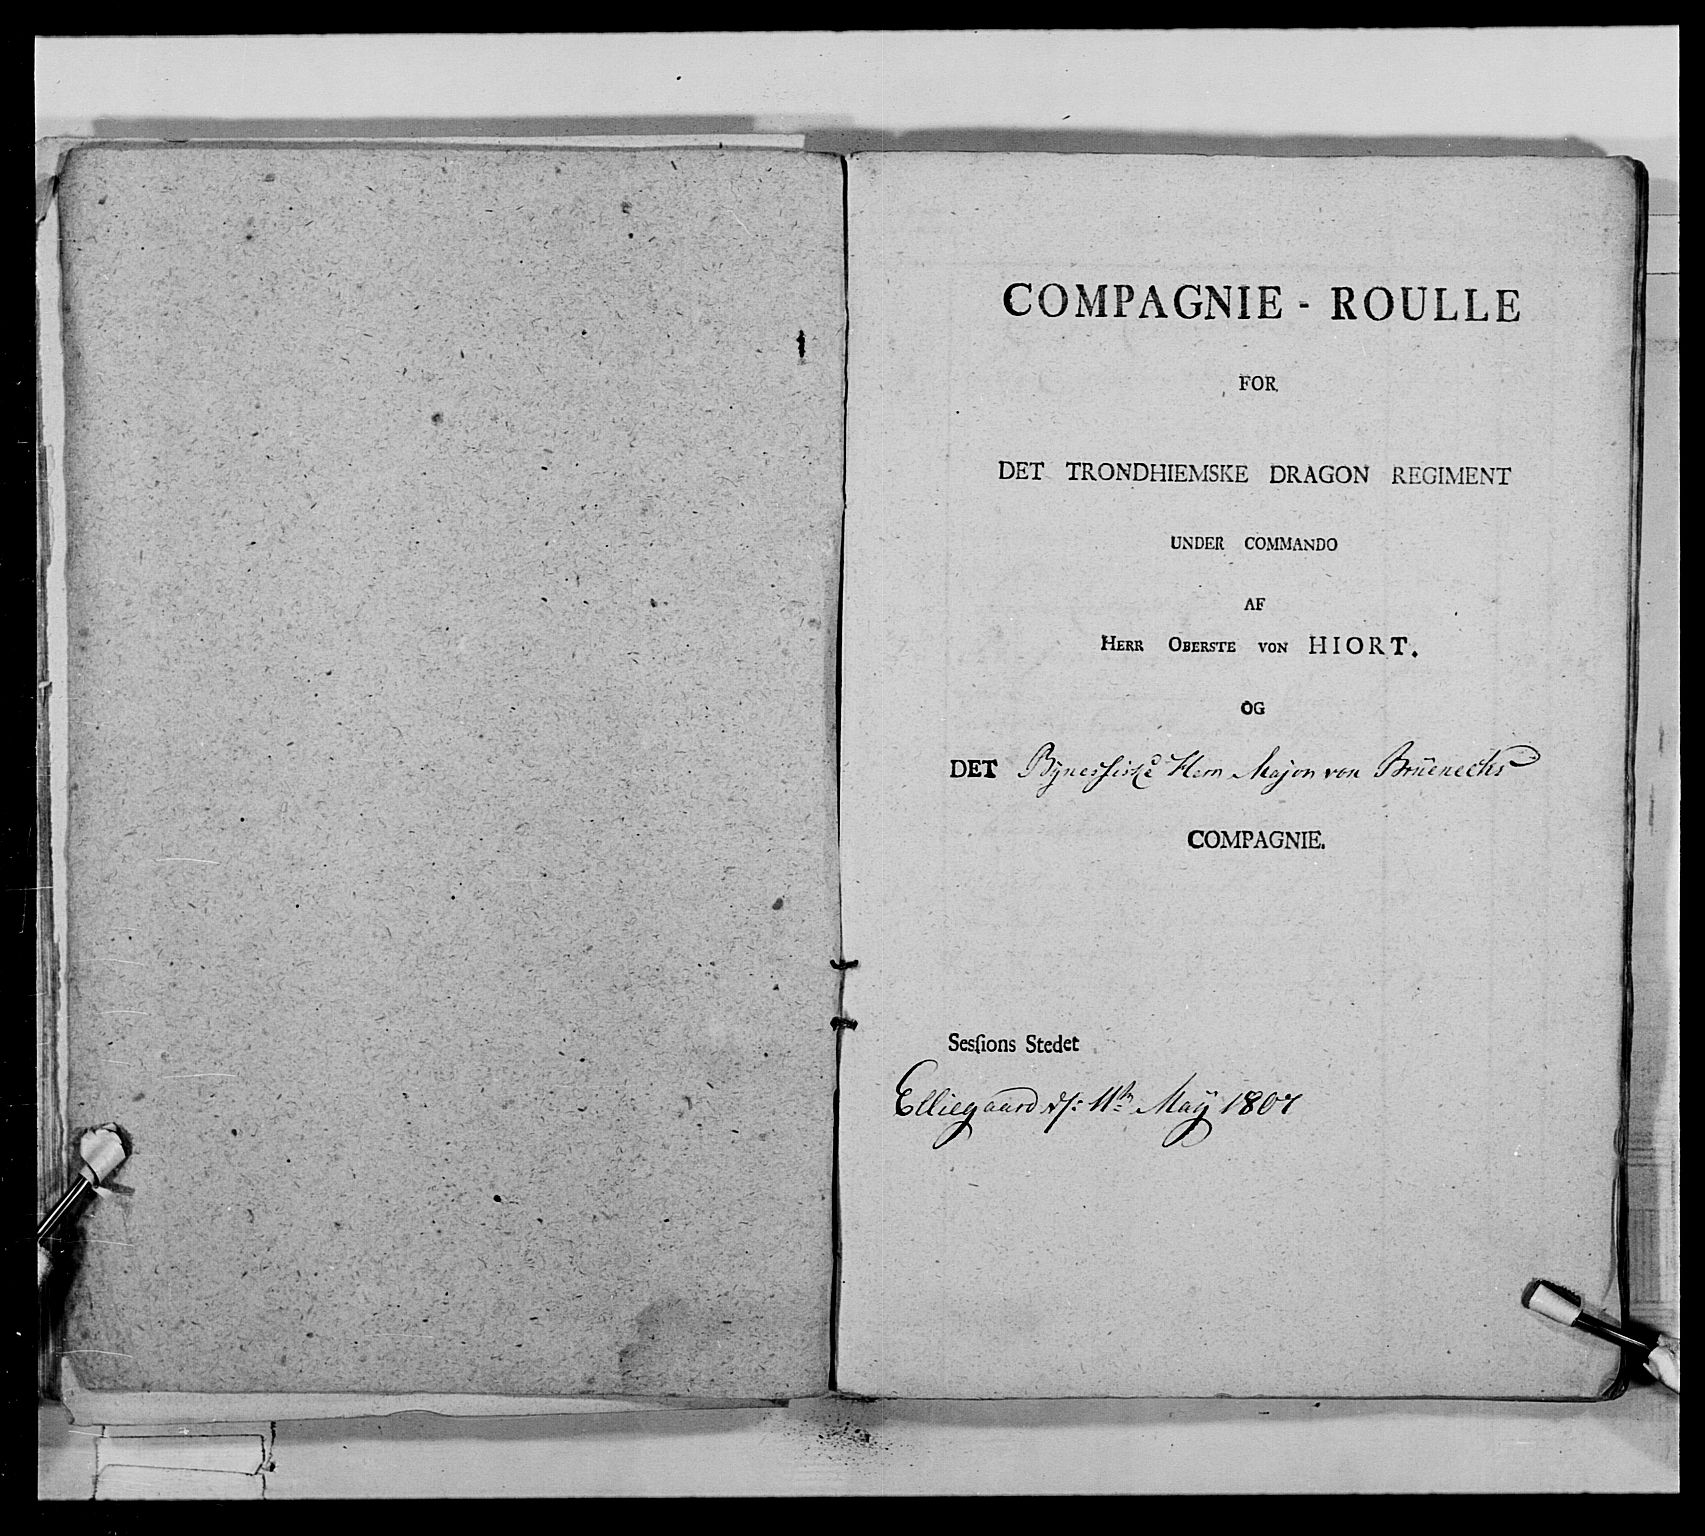 COMPAGNIE - ROULLE
FOR
DET TRONDHIEMSKE DRAGON REGIMENT
UNDER COMMANDO
AF
HERR OBERSTE VON HIORT.
OG
DET Bÿnesfiske Herr Major von Brüenechs
COMPAGNIE.
Sesſions Stedet
Elliegaard d/: 11te Maÿ 1807